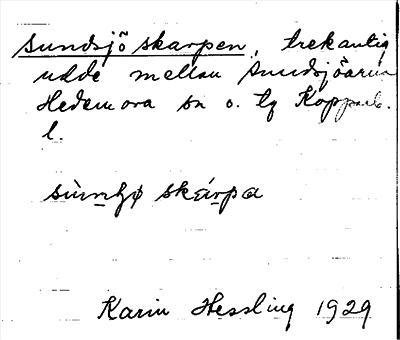 Sundsjö skarpen, trekantig
udde mellan Sundsjöarna
Hedemora sn o. tg Kopparb.
l.
skárpa
Karin Hessling 1929